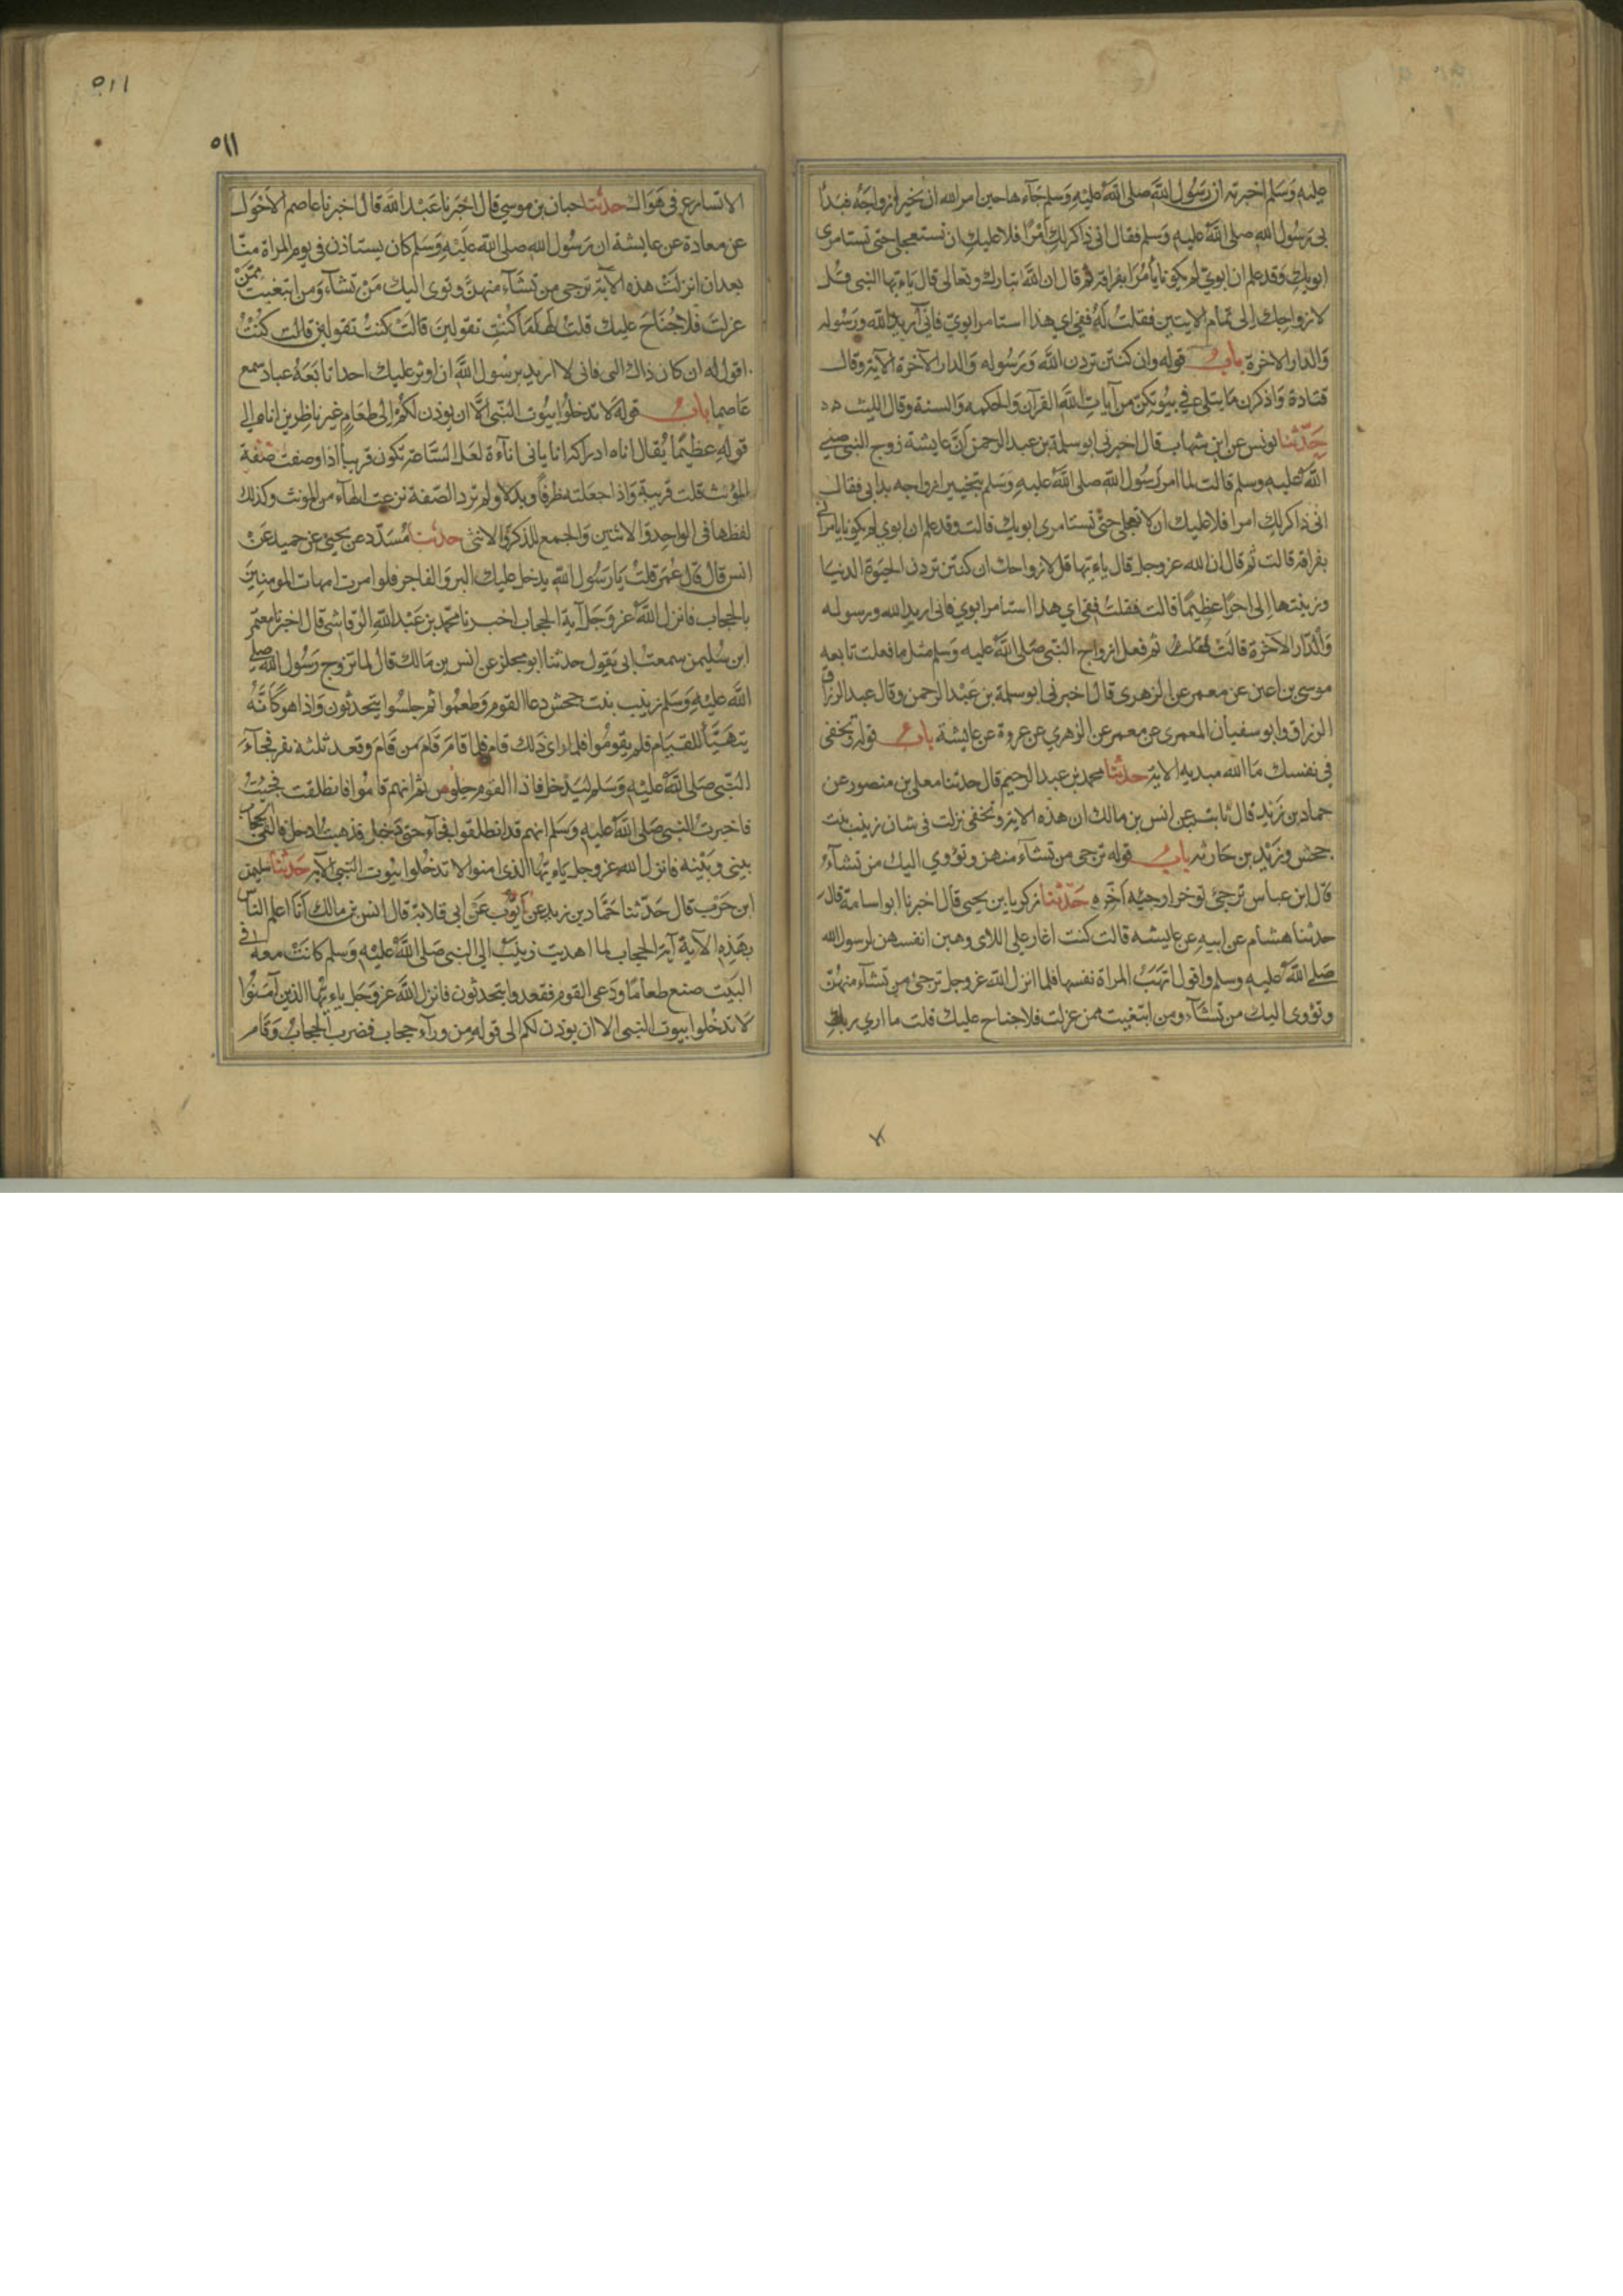 عليه وَسَلم اخبرته ان رَسُول اللَّه صلى اللَّه عليهِ وَسَلم جَآءها حين امر الله ان يخير ازواجَهُ فبدَأ
بى رَسُول الله صلى اللَّه عليهِ وَسلم فقال انى ذاكر لكِ أمْرًا فلا عليكِ ان تستعجلى حتى تستامرى
ابويكِ وَقد علم ان ابويّ لم يكونا يأمُرَانى بفراقه ثم قال ان اللَّه تبارك وتعالى قال ياءيها النبى قُل
لازواجك اِلى تمام الايتين فقلتُ لَهُ ففى اي هذا استامر ابويّ فانى اُريدُ اللّه ورَسُوله
وَالدار الاخرة بابُ قوله وان كنتن تردن اللَّه وَرَسُوله وَالدار الآخرة الآية وقال
قتادة وَاذكرن مَا يتلى في بيُوتكنّ من آياتِ اللَّه القرآن وَالحكمه وَالسنة وقال الليث
حَدّثنا يونس عن ابن شهاب قال اخبرنى ابو سلمة بن عبد الرحمن اَنَّ عايشة زوج النبى صلى
اللَّه عليهِ وسلم قالت لما امر رَسُول اللّه صلى اللَّه عليهِ وَسَلم بتخيير ازواجه بدا بى فقال
انى ذاكر لكِ امرا فلا عليك ان لا تعجلى حتّى تستامرى ابويك قالت وقد علم ان ابوي لم يكونا يامرانى
بفراقه قالت ثم قال ان الله عزوجل قال ياءيها قل لازواجك ان كنتن تردن الحيَوة الدنيا
وزينتها اِلى اجرًا عظِيمًا قالت فقلتُ ففى اي هذا استامر ابوي فانى اريد الله ورسوله
وَالدار الآخرة قالَت ثم فعل ازواج النبى صَلى اللَّه عليه وَسلم مثل ما فعلت تابعه
موسى بن اعين عن معمر عن الزهرى قال اخبرنى ابو سلمة بن عَبْد الرحمن وقال عبد الرزاق
الرزاق وابو سفيان المعمرى عن معمر عن الزهري عن عروة عن عايشة بابُ قوله وتخفى
فى نفسك مَا اللّه مبديهِ الاية حدثنا محمد بن عبد الرحيم قال حدثنا معلى بن منصور عن
حماد بن زَيد قال ثابت عن انس بن مالك ان هذه الاية وتخفى نزلت فى شان زينب بنت
جحش وزَيْد بن حَارثه بابُ قوله ترجى من تشآء منهن وتؤوي اليك من تشآءُ
قال ابن عباس ترجئ توخر ارجئه اَخّرهِ حَدّثنا زكريا بن يحيى قال اخبرنا ابو اسامة قال
حدثنا هشام عن ابيهِ عن عايشه قالت كنت اغار على اللاى وهبن انفسهن لرسول الله
صَلى اللَّه عليهِ وسلم واقول اتهَبُ المراة نفسها فلما انزل اللّه عزوجل ترجئ من تشآء منهُنّ
وتؤوى اليك من تشآء ومن ابتغيت ممن عزلت فلا جناح عليك قلت ما ارى ربك
٥١١
٥١١
الا يسارع فى هَوَاك حدثنا حبان بن موسى قال اخبَرنا عَبْد اللَّه قال اخبرنا عاصم الاحْوَل
عن معاذة عن عايشة ان رَسُول الله صلى اللّه عَلَيْهِ وَسَلم كان يستاذن فى يوم المراة منّا
بعد ان انزلَتْ هذه الآية ترجى من تشَآء منهنّ وتوى اليك مَنْ تشآء وَمن ابتغيت ممّنْ
عزلتَ فلا جُنَاحَ عليك قلتُ لهَا مَا كُنْتِ تقولينَ قالَتْ كنتُ تقولين قالت كُنْتُ
اقول له ان كان ذاك الى فانى لا اريد يرسُول اللَّه ان اوثر عليك احدا تابَعَهُ عباد سمع
عَاصما بابُ قوله لا تدخلُوا بيُوت النّبى الَّا ان يوذن لكُمْ اِلى طعَامٍ غير ناظرين اناه الى
قوله عظيمًا يُقال اناه ادراكه انا يانى اناءة لعَلّ السّاعة تكون قريباً اذا وصفت صفة
المؤنث قلت قريبة وَاذا جعَلته ظرفاً وبدلا ولم ترد الصّفة نزعت الهآء من المونث وكذلك
لفظها فى الواحِد وَالاثنَين وَالجمع للذكر وَالانثى حدثنا مُسَدّد عن يحيى عن حميد عَنْ
انس قال قال عُمَر قلتُ يَا رَسُول اللّهِ يدخل عليك البر وَالفاجر فلو امرت امهات المومنين
بالحجاب فانزل اللَّه عز وَجَل آية الحجاب اخبرنا محمّد بن عَبْد اللّهِ الرّقاشى قال اخبرنا معتمر
ابن سُليمن سمعتُ ابى يَقول حدثنا ابو مجلز عن انس بن مَالك قال لما تزوج رَسُول اللّه صلى
اللَّه عليْهِ وَسَلم زينب بنت جحش دعا القوم فَطعمُوا ثم جلسُوا يتحدثون وَاذا هو كَانَّهُ
يتهَيّأ للقيَام فلم يقومُوا فلما راى ذَلك قام فلما قامَ قَامَ من قامَ وقعد ثلثة نفر فجآءَ
النّبى صَلى اللَّه عليْهِ وَسَلم ليَدْخل فاذا القوم جلُوس ثم انهم قامُوا فانطلقت فجِئتُ
فاخبرت النبى صَلى اللَّه عليهِ وَسَلم انهم قد انطلقوا فجآء حتى دَخل فذهبت ادخل فالقى الحجاب
بينى وَبَيْنه فانزل اللّه عزوجل ياءيهَا الذى امنوا لا تدخُلوا بيوت النبى الاية حَدثنا سليمن
ابن حَرب قال حَدّثنا حَمّاد بن زيد عن ايّوب عَن ابى قلابة قال انس بن مالك اَنَا اعلم الناس
بهَذِهِ الآيَة آية الحجاب لما اهديت زينَبْ الى النبى صَلى اللَّه عليْهِ وَسلم كانَتْ معه فى
البَيت صنع طعَامًا ودَعى القوم فقعدوا يتحدثون فانزل اللَّه عز وَجَل ياءيهَا الذين آمَنُوا
لَا تدخُلوا بيوت النبى الا ان يوذن لكم الى قولهِ من ورآء حجاب فضرب الحجابُ وَقام